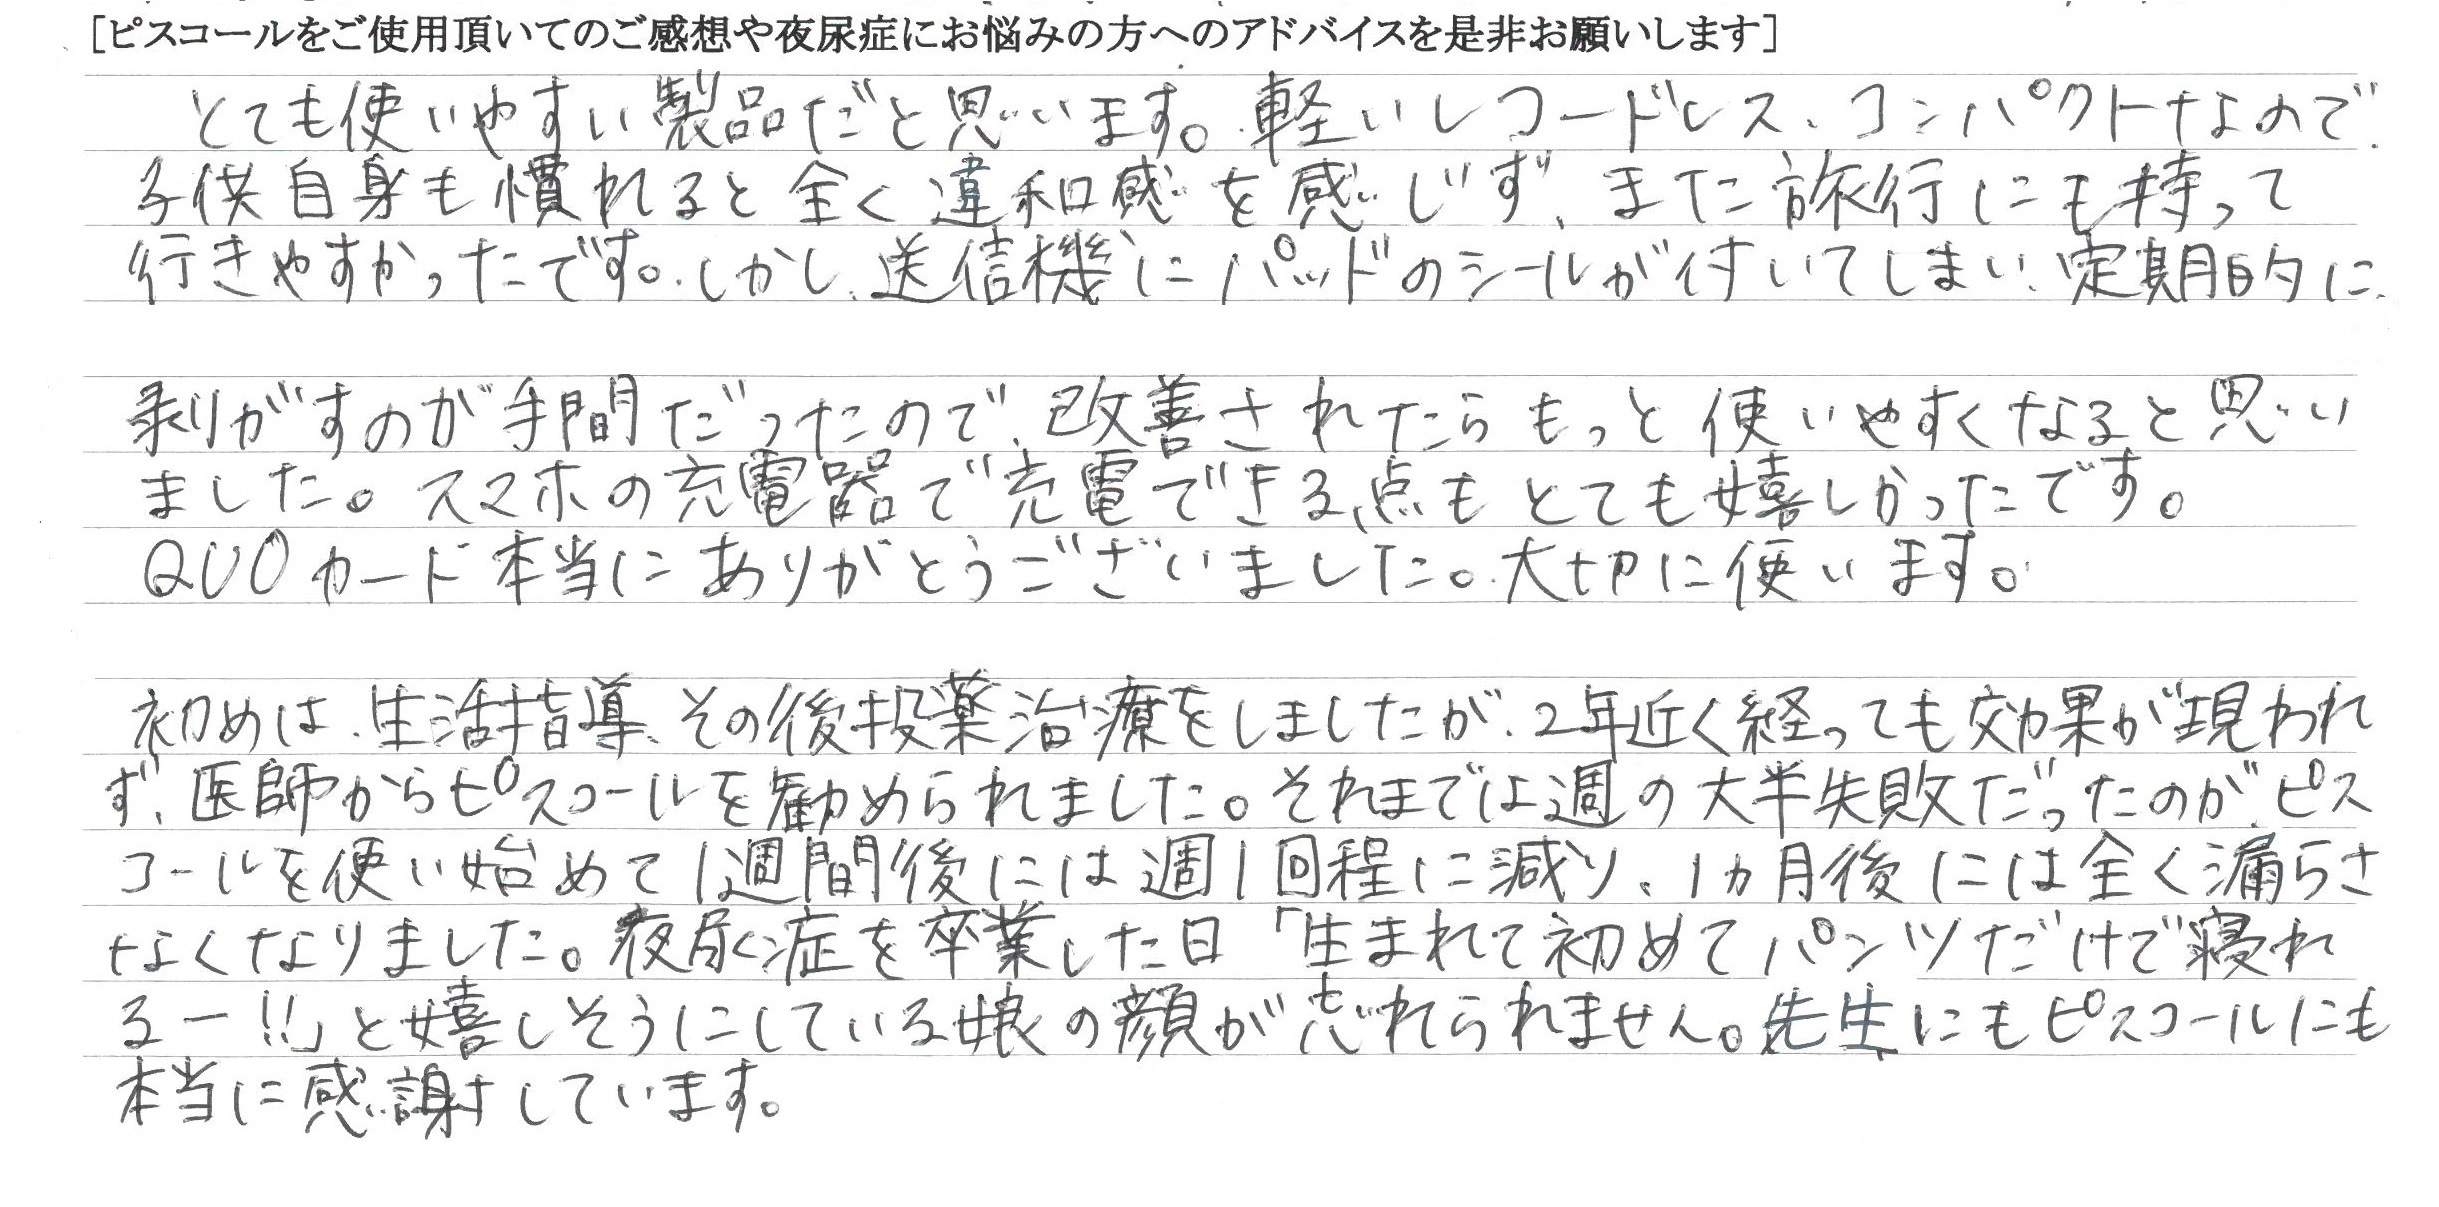 [ピスコールをご使用頂いてのご感想や夜尿症にお悩みの方へのアドバイスを是非お願いします]
とても使いやすい製品だと思います。軽いしコードレス、コンパクトなので
子供自身も慣れると全く違和感を感じず、また旅行にも持って
行きやすかったです。しかし、送信機にパッドのシールが付いてしまい、定期的に
剥がすのが手間だったので、改善されたらもっと使いやすくなると思い
ました。スマホの充電器で充電できる点もとても嬉しかったです。
QUOカード本当にありがとうございました。大切に使います。
初めは、生活指導、その後投薬治療をしましたが、2年近く経っても効果が現われ
ず、医師からピスコールを勧められました。それまでは週の大半失敗だったのが、ピス
コールを使い始めて1週間後には週1回程に減り、1ヵ月後には全く漏らさ
なくなりました。夜尿症を卒業した日「生まれて初めてパンツだけで寝れ
るー!!」と嬉しそうにしている娘の顔が忘れられません。先生にもピスコールにも
本当に感謝しています。